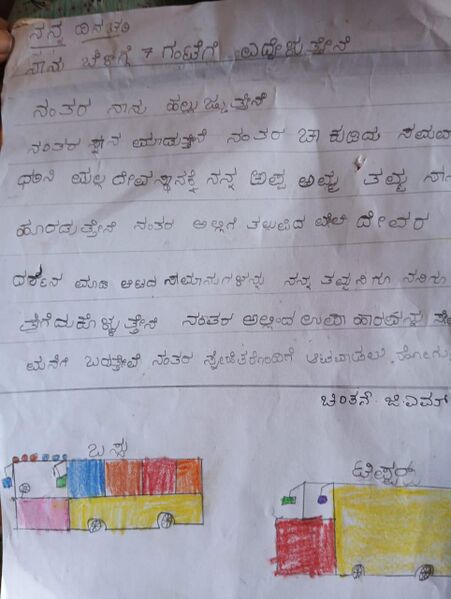 ನನ್ನ ದಿನಚರಿ
ನಾನು ಬೆಳಿಗ್ಗೆ 7 ಗಂಟೆಗೆ ಎದ್ದೇಳುತ್ತೇನೆ
ನಂತರ ನಾನು ಹಲ್ಲುಜ್ಜುತ್ತೇನೆ
ನಂತರ ಸ್ನಾನ ಮಾಡುತ್ತೇನೆ ನಂತರ ಚಾ ಕುಡಿದು
ದೇವಸ್ಥಾನಕ್ಕೆ ನನ್ನ ಅಪ್ಪ ಅಮ್ಮ ತಮ್ಮ
ಹೊರಡುತ್ತೇನೆ ನಂತರ ಅಲ್ಲಿಗೆ ತಲುಪಿದ ಮೇಲೆ ದೇವರ
ದರ್ಶನ ಮಾಡಿ ಆಟದ ಸಾಮಾನುಗಳನ್ನು ನನ್ನ ತಮ್ಮನಿಗೂ ನನಗೂ
ತೆಗೆದುಕೊಳ್ಳುತ್ತೇನೆ ನಂತರ ಅಲ್ಲಿಂದ ಉಪಾಹಾರವನ್ನು
ಮನೆಗೆ ಬರುತ್ತೇವೆ ನಂತರ ಸ್ನೇಹಿತರೊಂದಿಗೆ ಆಟವಾಡಲು
ಚಿಂತನ ಜಿ.ಎಮ್
ಬಸ್ಸು